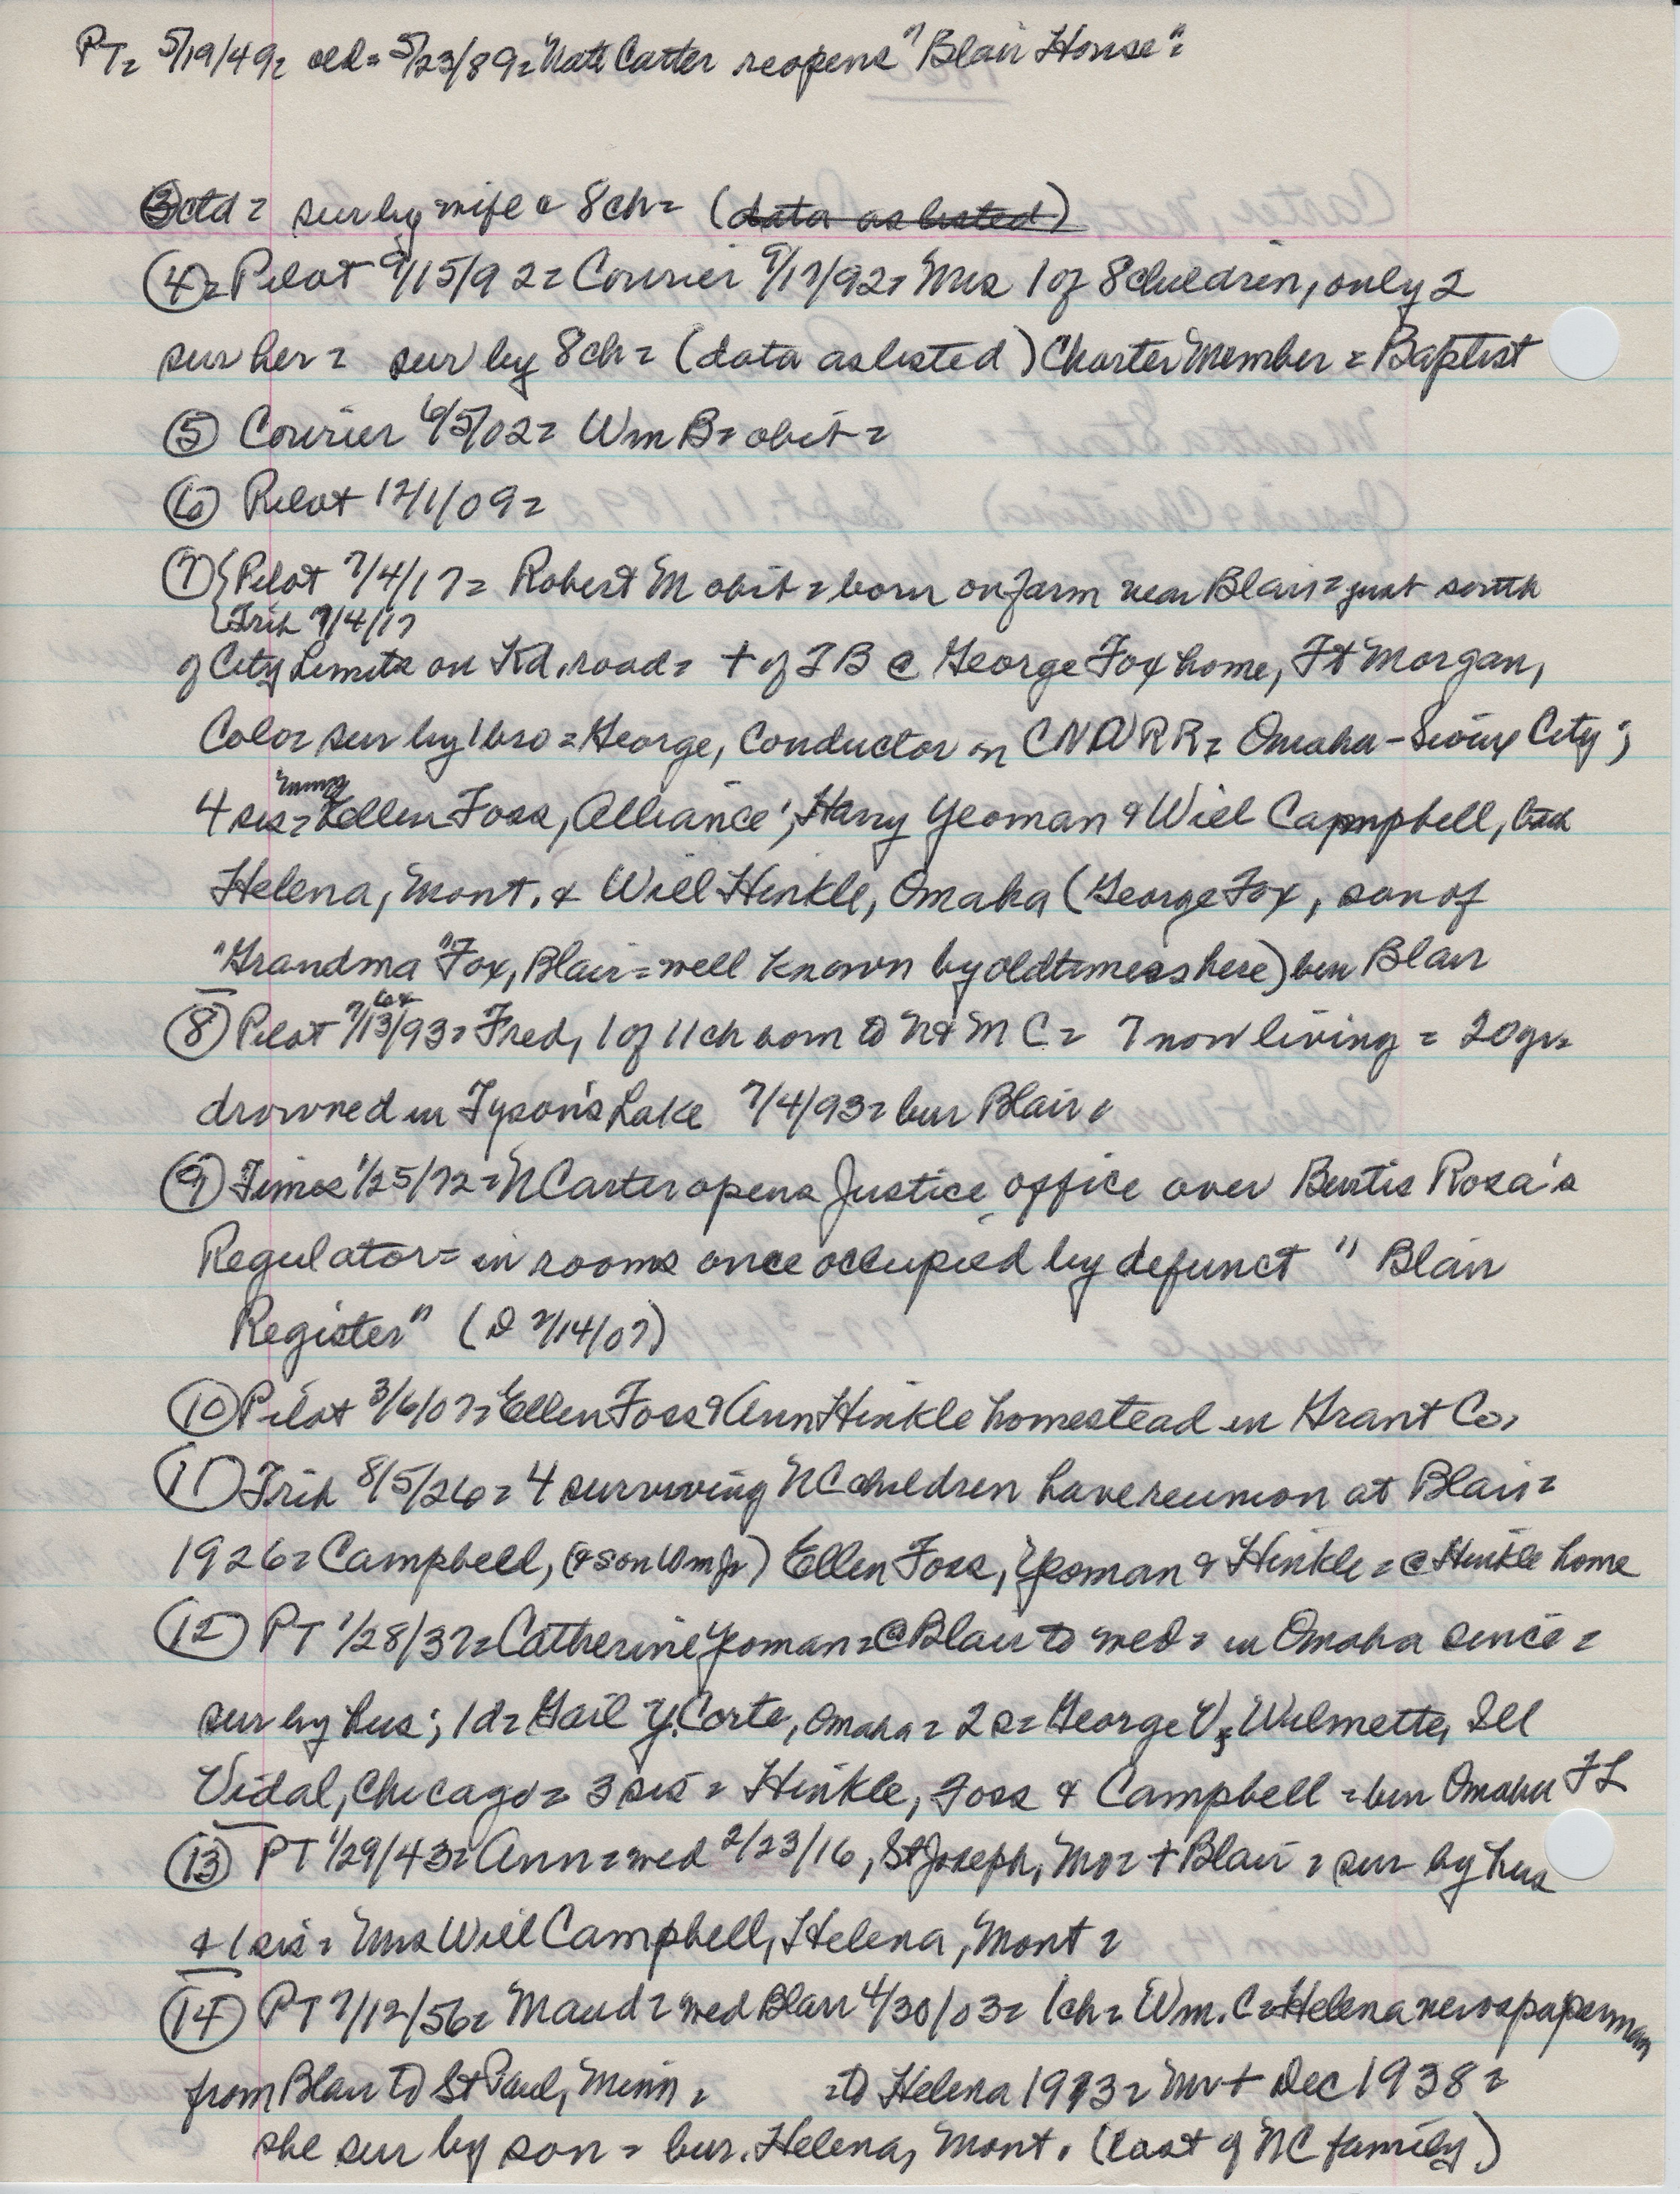 PT= 5/19/49= old= 5/23/89= Nate Carter reopens "Blair House"=
③ctd= sur by wife & 8ch= (data as listed)
④= Pilot 9/15/92= Courier 9/17/92= Mrs 1 of 8 children, only 2
sur her= sur by 8ch= (data as listed) Charter Member = Baptist
⑤ Courier 6/5/02= Wm B= obit=
⑥ Pilot 12/1/09=
⑦ {Pilot 7/4/17= Robert M obit= born on farm near Blair= just south
{Trib 7/4/17
of City Limits on Kd. road= + of TB @ George Fox home, Ft Morgan,
Colo= sur by 1 bro= George, Conductor on CNW RR= Omaha-Sioux City;
4 sis= Ellen Foss, Alliance; Harry Yeoman & Will Campbell, both
Helena, Mont. & Will Hinkle, Omaha (George Fox, son of
"Grandma" Fox, Blair= well known by oldtimers here) bur Blair
⑧ Pilot 7/13/93= Fred, 1 of 11 ch born to N & M C= 7 now living = 20 yrs
drowned in Tyson's Lake 7/4/93= bur Blair=
⑨ Times 1/25/72= N Carter opens Justice office over Burtis Rosa's
Regulator= in rooms once occupied by defunct "Blair
Register" (D 7/14/07)
⑩ Pilot 3/6/07= Ellen Foss & Ann Hinkle homestead in Grant Co,
⑪ Trib 8/5/26= 4 surviving NC children have reunion at Blair=
1926= Campbell, (& son Wm Jr) Ellen Foss, Yeoman & Hinkle= @ Hinkle home
⑫ PT 1/28/37= Catherine Yoman= @ Blair to wed= in Omaha since=
sur by hus; 1d= Gail Y. Corte, Omaha= 2s= George V, Wilmette, Ill
Vidal, Chicago= 3 sis= Hinkle, Foss & Campbell= bur Omaha FL
⑬ PT 1/29/43= Ann= wed 2/23/16, St Joseph, Mo= + Blair= sur by hus
& 1 sis= Mrs Will Campbell, Helena, Mont=
⑭ PT 7/12/56= Maud= wed Blair 4/30/03= 1ch= Wm. C= Helena newspaperman
from Blair to St Paul, Minn, =to Helena 1913= Mr + Dec 1938=
she sur by son= bur. Helena, Mont. (last of NC family)